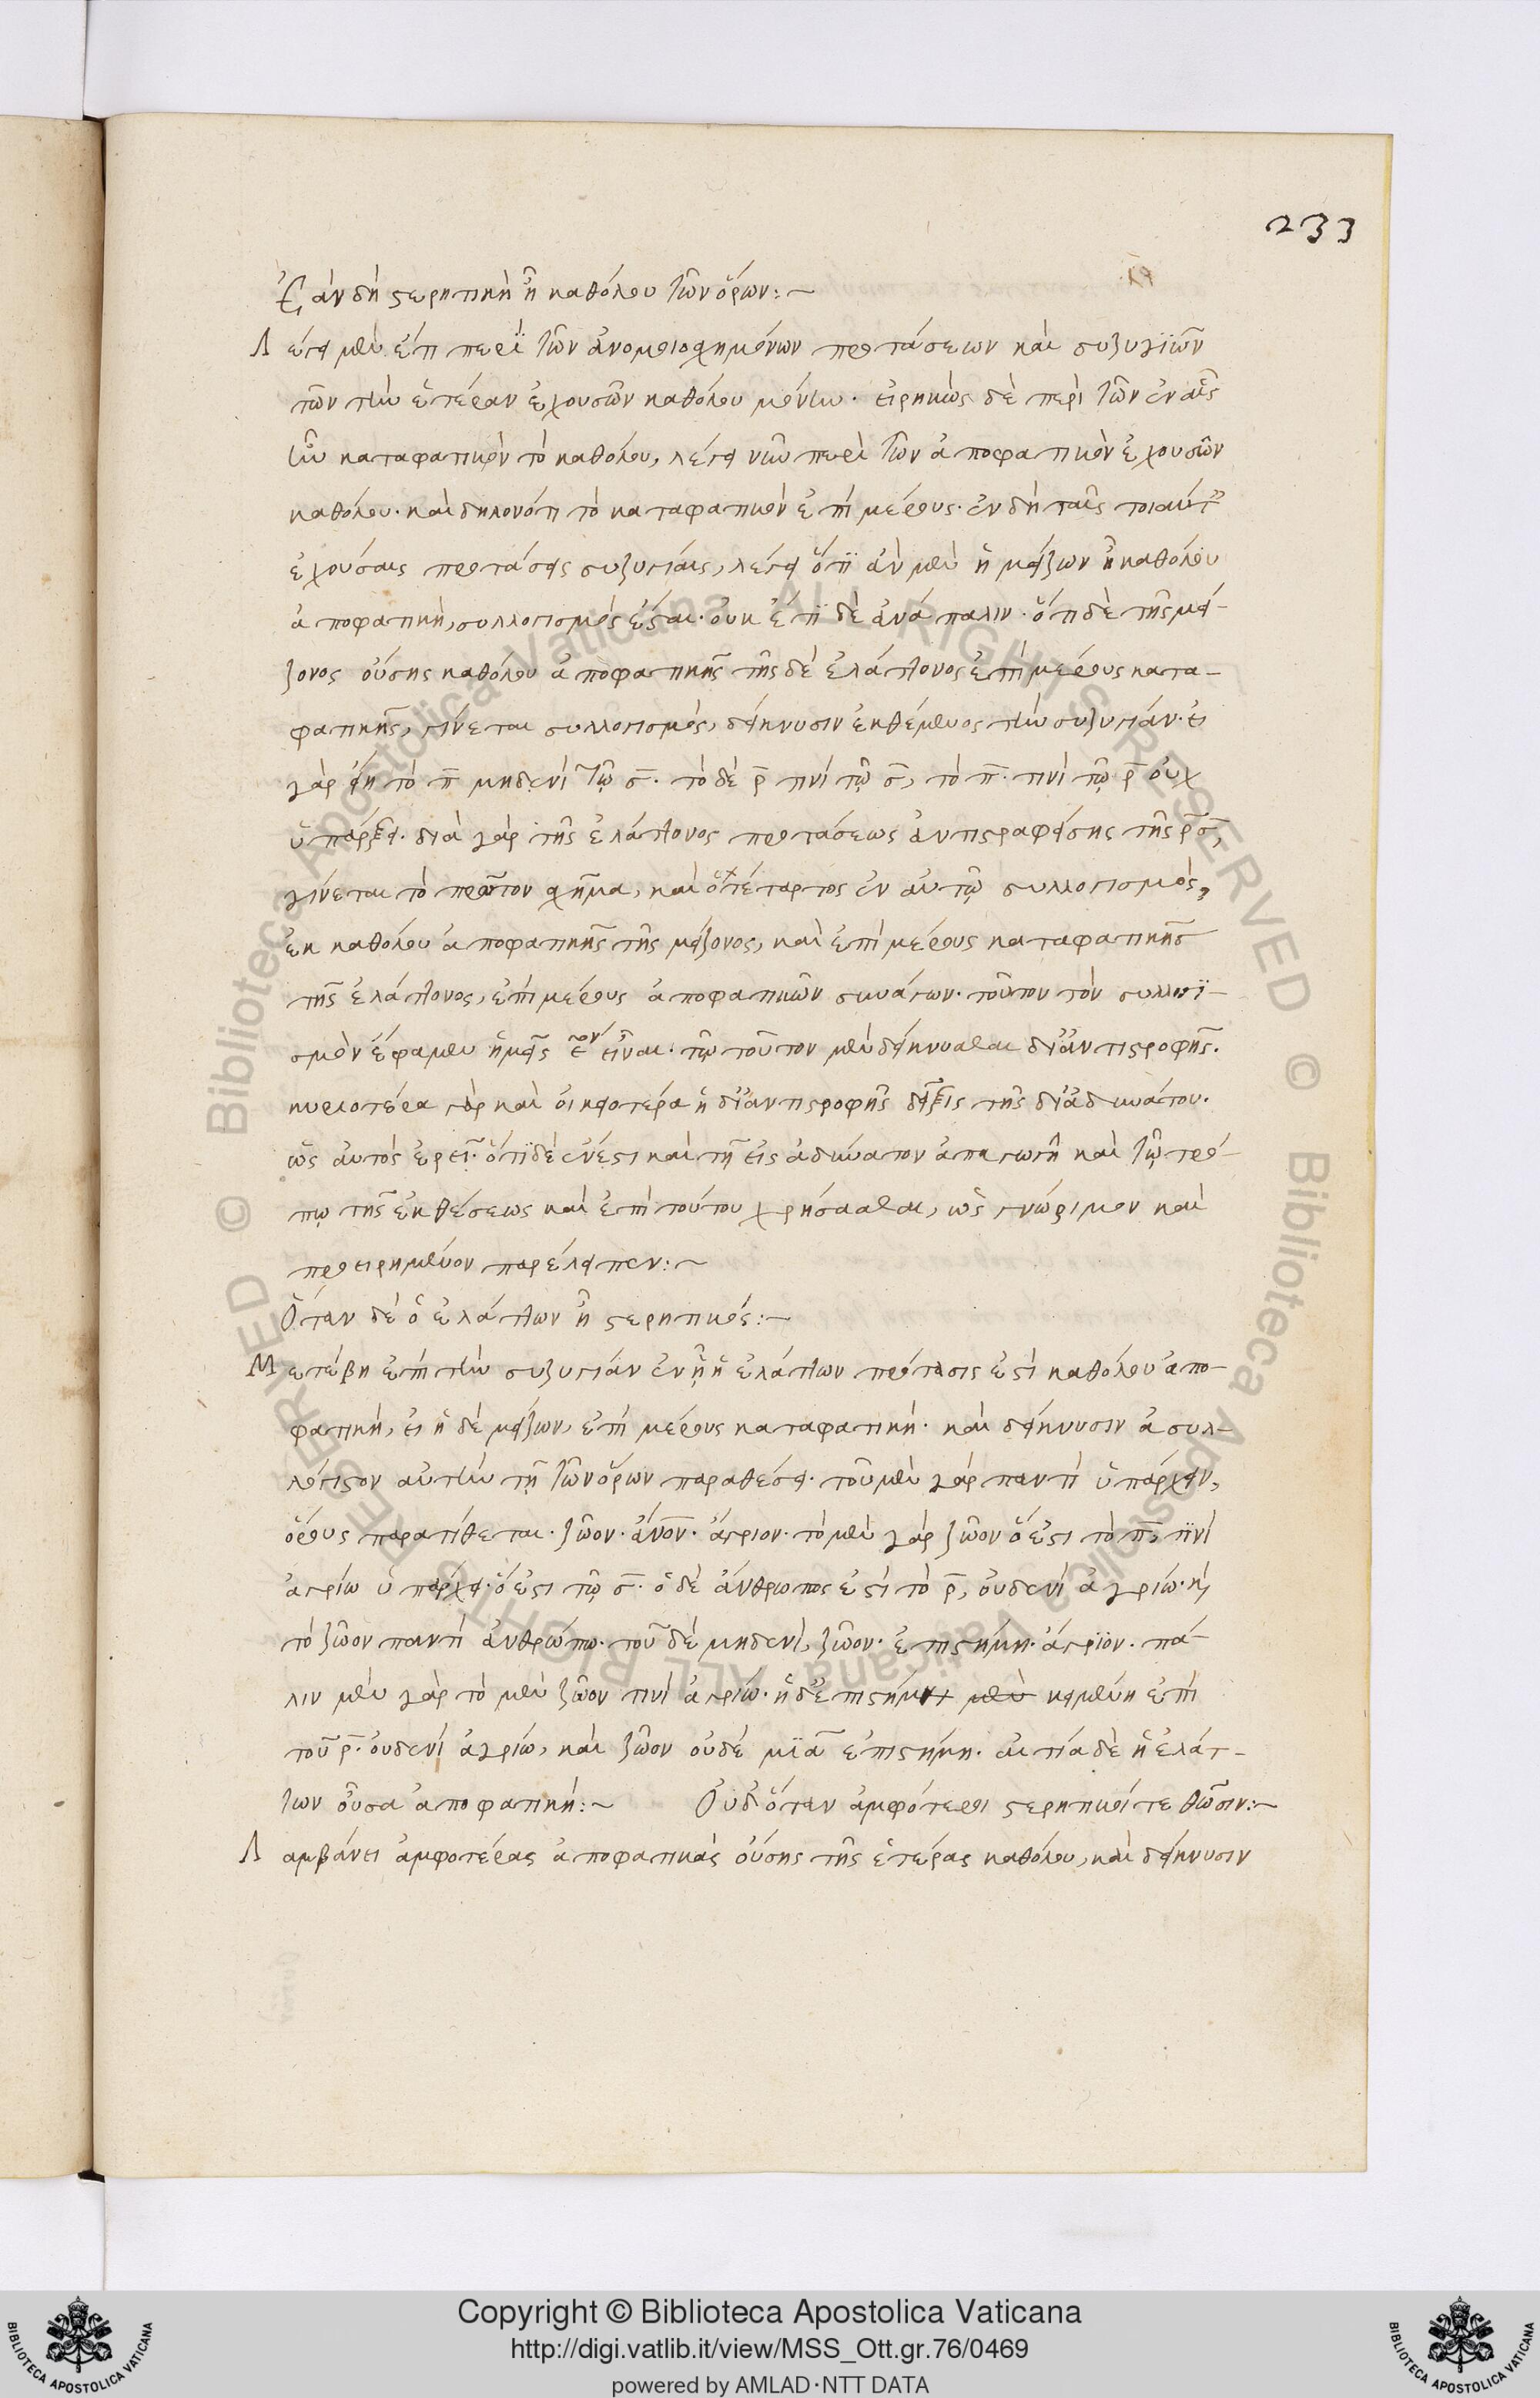 233
Ἐὰν δὴ στερητικὴ ἦ καθόλου τῶν ὅρων:~
Λέγει μὲν ἔτι περὶ τῶν ἀνομοιοσχημόνων προτάσεων καὶ συζυγιῶν
τῶν τὴν ἑτέραν ἐχουσῶν καθόλου μόνην· εἰρηκὼς δὲ περὶ τῶν ἐν αἷς
ἦν καταφατικὸν τὸ καθόλου, λέγει νῦν περὶ τῶν ἀποφατικὸν ἐχουσῶν
καθόλου· καὶ δηλονότι τὸ καταφατικὸν ἐπὶ μέρους· ἐν δὴ ταῖς τοιαύτ
ἐχούσαις προτάσεις συζυγίαις, λέγει ὅτι ἂν μὲν ἡ μείζων ἦ καθόλου
ἀποφατικὴ, συλλογισμὸς ἔσται· οὐκ ἔτι δὲ ἀνάπαλιν· ὅτι δὲ τῆς μεί-
ζονος οὔσης καθόλου ἀποφατικῆς τῆς δὲ ἐλάττονος ἐπὶ μέρους κατα-
φατικῆς, γίνεται συλλογισμὸς, δείκνυσιν ἐκθέμενος τὴν συζυγίαν· εἰ
γὰρ εἴη τὸ π̄ μηδενὶ τῷ σ̄· τὸ δὲ ρ̄ τινὶ τῷ σ̄, τὸ π̄· τινὶ τῷ ρ̄ οὐχ
ὑπάρξει· διὰ γὰρ τῆς ἐλάττονος προτάσεως ἀντιστραφείσης τῆς ρ̄σ̄,
γίνεται τὸ πρῶτον σχῆμα, καὶ ὁ τέταρτος ἐν αὐτῷ συλλογισμὸς,
ἐκ καθόλου ἀποφατικῆς τῆς μείζονος, καὶ ἐπὶ μέρους καταφατικῆς
τῆς ἐλάττονος, ἐπὶ μέρους ἀποφατικῶν συνάγων· τοῦτον τὸν συλλογι-
σμὸν ἔφαμεν ἡμεῖς ε̄ον εἶναι· τῷ τοῦτον μὲν δείκνυσθαι δι' ἀντιστροφῆς·
κυριοτέρα γὰρ καὶ οἰκειοτέρα ἡ δι' ἀντιστροφῆς δεῖξις τῆς δι' ἀδυνάτου·
ὡς αὐτὸς ἐρεῖ· ὅτι δὲ ἔνεστι καὶ τῇ εἰς ἀδύνατον ἀπαγωγῇ καὶ τῷ τρό-
πῳ τῆς ἐκθέσεως καὶ ἐπὶ τούτου χρήσασθαι, ὡς γνώριμον καὶ
προειρημένον παρέλειπεν:~
Ὅταν δὲ ὁ ἐλάττων ἦ στερητικός:~
Μετέβη ἐπὶ τὴν συζυγίαν ἐν ᾗ ἡ ἐλάττων πρότασις ἐστὶ καθόλου ἀπο-
φατικὴ, εἰ ἡ δὲ μείζων, ἐπὶ μέρους καταφατική· καὶ δείκνυσιν ἀσυλ-
λόγιστον αὐτὴν τῇ τῶν ὅρων παραθέσει· τοῦ μὲν γὰρ παντὶ ὑπάρχειν,
ὅρους παρατίθεται· ζῶον· ἀν̅ο̅ν· ἄγριον· τὸ μὲν γὰρ ζῶον ὅ ἐστι τὸ π̄, τινὶ
ἀγρίω ὑπάρχει· ὅ ἐστι τῷ σ̄· ὁ δὲ ἄνθρωπος ἐστὶ τὸ ρ̄, οὐδενὶ ἀγρίω· κ
τὸ ζῶον παντὶ ἀνθρώπω· τοῦ δὲ μηδενὶ, ζῶον· ἐπιστήμη· ἄγριον· πά-
λιν μὲν γὰρ τὸ μὲν ζῶον τινὶ ἀγρίω· ἡ δ' ἐπιστήμη μὲν κειμένη ἐπὶ
τοῦ ρ̄· οὐδενὶ ἀγρίω, καὶ ζῶον οὐδὲ μιᾶ ἐπιστήμη· αἰτία δὲ ἡ ἐλάτ-
των οὖσα ἀποφατική:~ Οὐδ' ὅταν ἀμφότεροι στερητικοί τεθῶσιν:~
Λαμβάνει ἀμφοτέρας ἀποφατικὰς οὔσης τῆς ἑτέρας καθόλου, καὶ δείκνυσιν
Copyright © Biblioteca Apostolica Vaticana
http://digi.vatlib.it/view/MSS_Ott.gr.76/0469
powered by AMLAD·NTT DATA
BIBLIOTECA APOSTOLICA VATICANA
BIBLIOTECA APOSTOLICA VATICANA
© Biblioteca Apostolica Vaticana ALL RIGHTS RESERVED
© Biblioteca Apostolica Vaticana ALL RIGHTS RESERVED